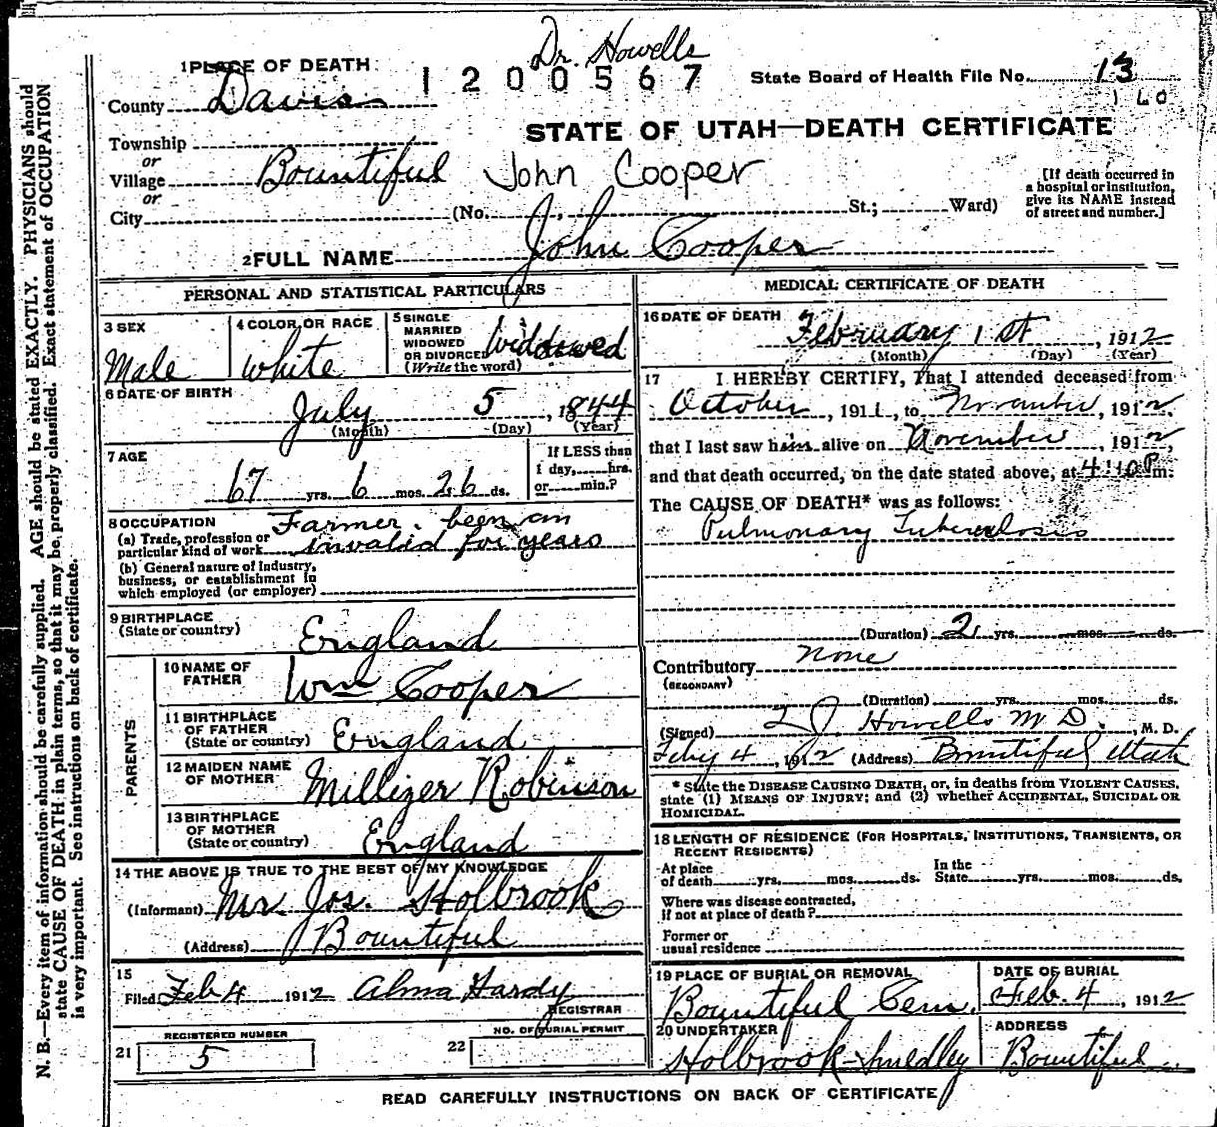 N. B.—Every item of information should be carefully supplied. AGE should be stated EXACTLY. PHYSICIANS should
state CAUSE OF DEATH in plain terms, so that it may be properly classified. Exact statement of OCCUPATION
is very important. See instructions on back of certificate.
Dr. Howells
1 PLACE OF DEATH
1200567
State Board of Health File No. 13
160
County Davis
STATE OF UTAH—DEATH CERTIFICATE
Township
or
Village Bountiful
John Cooper
[If death occurred in
a hospital or institution,
give its NAME instead
of street and number.]
or
City (No. St.; Ward)
2 FULL NAME John Cooper
PERSONAL AND STATISTICAL PARTICULARS
3 SEX
Male
4 COLOR OR RACE
White
5 SINGLE
MARRIED
WIDOWED
OR DIVORCED
(Write the word)
Widowed
6 DATE OF BIRTH
July 5, 1844
(Month) (Day) (Year)
7 AGE
67 yrs. 6 mos. 26 ds.
If LESS than
1 day, hrs.
or min.?
8 OCCUPATION
(a) Trade, profession or
particular kind of work
Farmer. been an
invalid for years
(b) General nature of Industry,
business, or establishment in
which employed (or employer)
9 BIRTHPLACE
(State or country)
England
PARENTS
10 NAME OF
FATHER
Wm Cooper
11 BIRTHPLACE
OF FATHER
(State or country)
England
12 MAIDEN NAME
OF MOTHER
Millizer Robinson
13 BIRTHPLACE
OF MOTHER
(State or country)
England
14 THE ABOVE IS TRUE TO THE BEST OF MY KNOWLEDGE
(Informant) Mr. Jos. Holbrook
(Address) Bountiful
15
Filed Feb 4 1912 Alma Hardy
REGISTRAR
REGISTERED NUMBER
21 5
NO. OF BURIAL PERMIT
22
MEDICAL CERTIFICATE OF DEATH
16 DATE OF DEATH
February 1st, 1912
(Month) (Day) (Year)
17 I HEREBY CERTIFY, That I attended deceased from
October, 1911, to November, 1912,
that I last saw him alive on November, 1912,
and that death occurred, on the date stated above, at 4:10 P m.
The CAUSE OF DEATH* was as follows:
Pulmonary Tuberculosis
(Duration) 2 yrs. mos. ds.
Contributory none
(SECONDARY)
(Duration) yrs. mos. ds.
(Signed) J. Howells M D., M. D.
Feby 4, 1912 (Address) Bountiful Utah
* State the DISEASE CAUSING DEATH, or, in deaths from VIOLENT CAUSES,
state (1) MEANS OF INJURY; and (2) whether ACCIDENTAL, SUICIDAL OR
HOMICIDAL.
18 LENGTH OF RESIDENCE (FOR HOSPITALS, INSTITUTIONS, TRANSIENTS, OR
RECENT RESIDENTS)
At place
of death yrs. mos. ds.
In the
State yrs. mos. ds.
Where was disease contracted,
if not at place of death?
Former or
usual residence
19 PLACE OF BURIAL OR REMOVAL
Bountiful Cem.
DATE OF BURIAL
Feb. 4, 1912
20 UNDERTAKER
Holbrook-Smedley
ADDRESS
Bountiful
READ CAREFULLY INSTRUCTIONS ON BACK OF CERTIFICATE